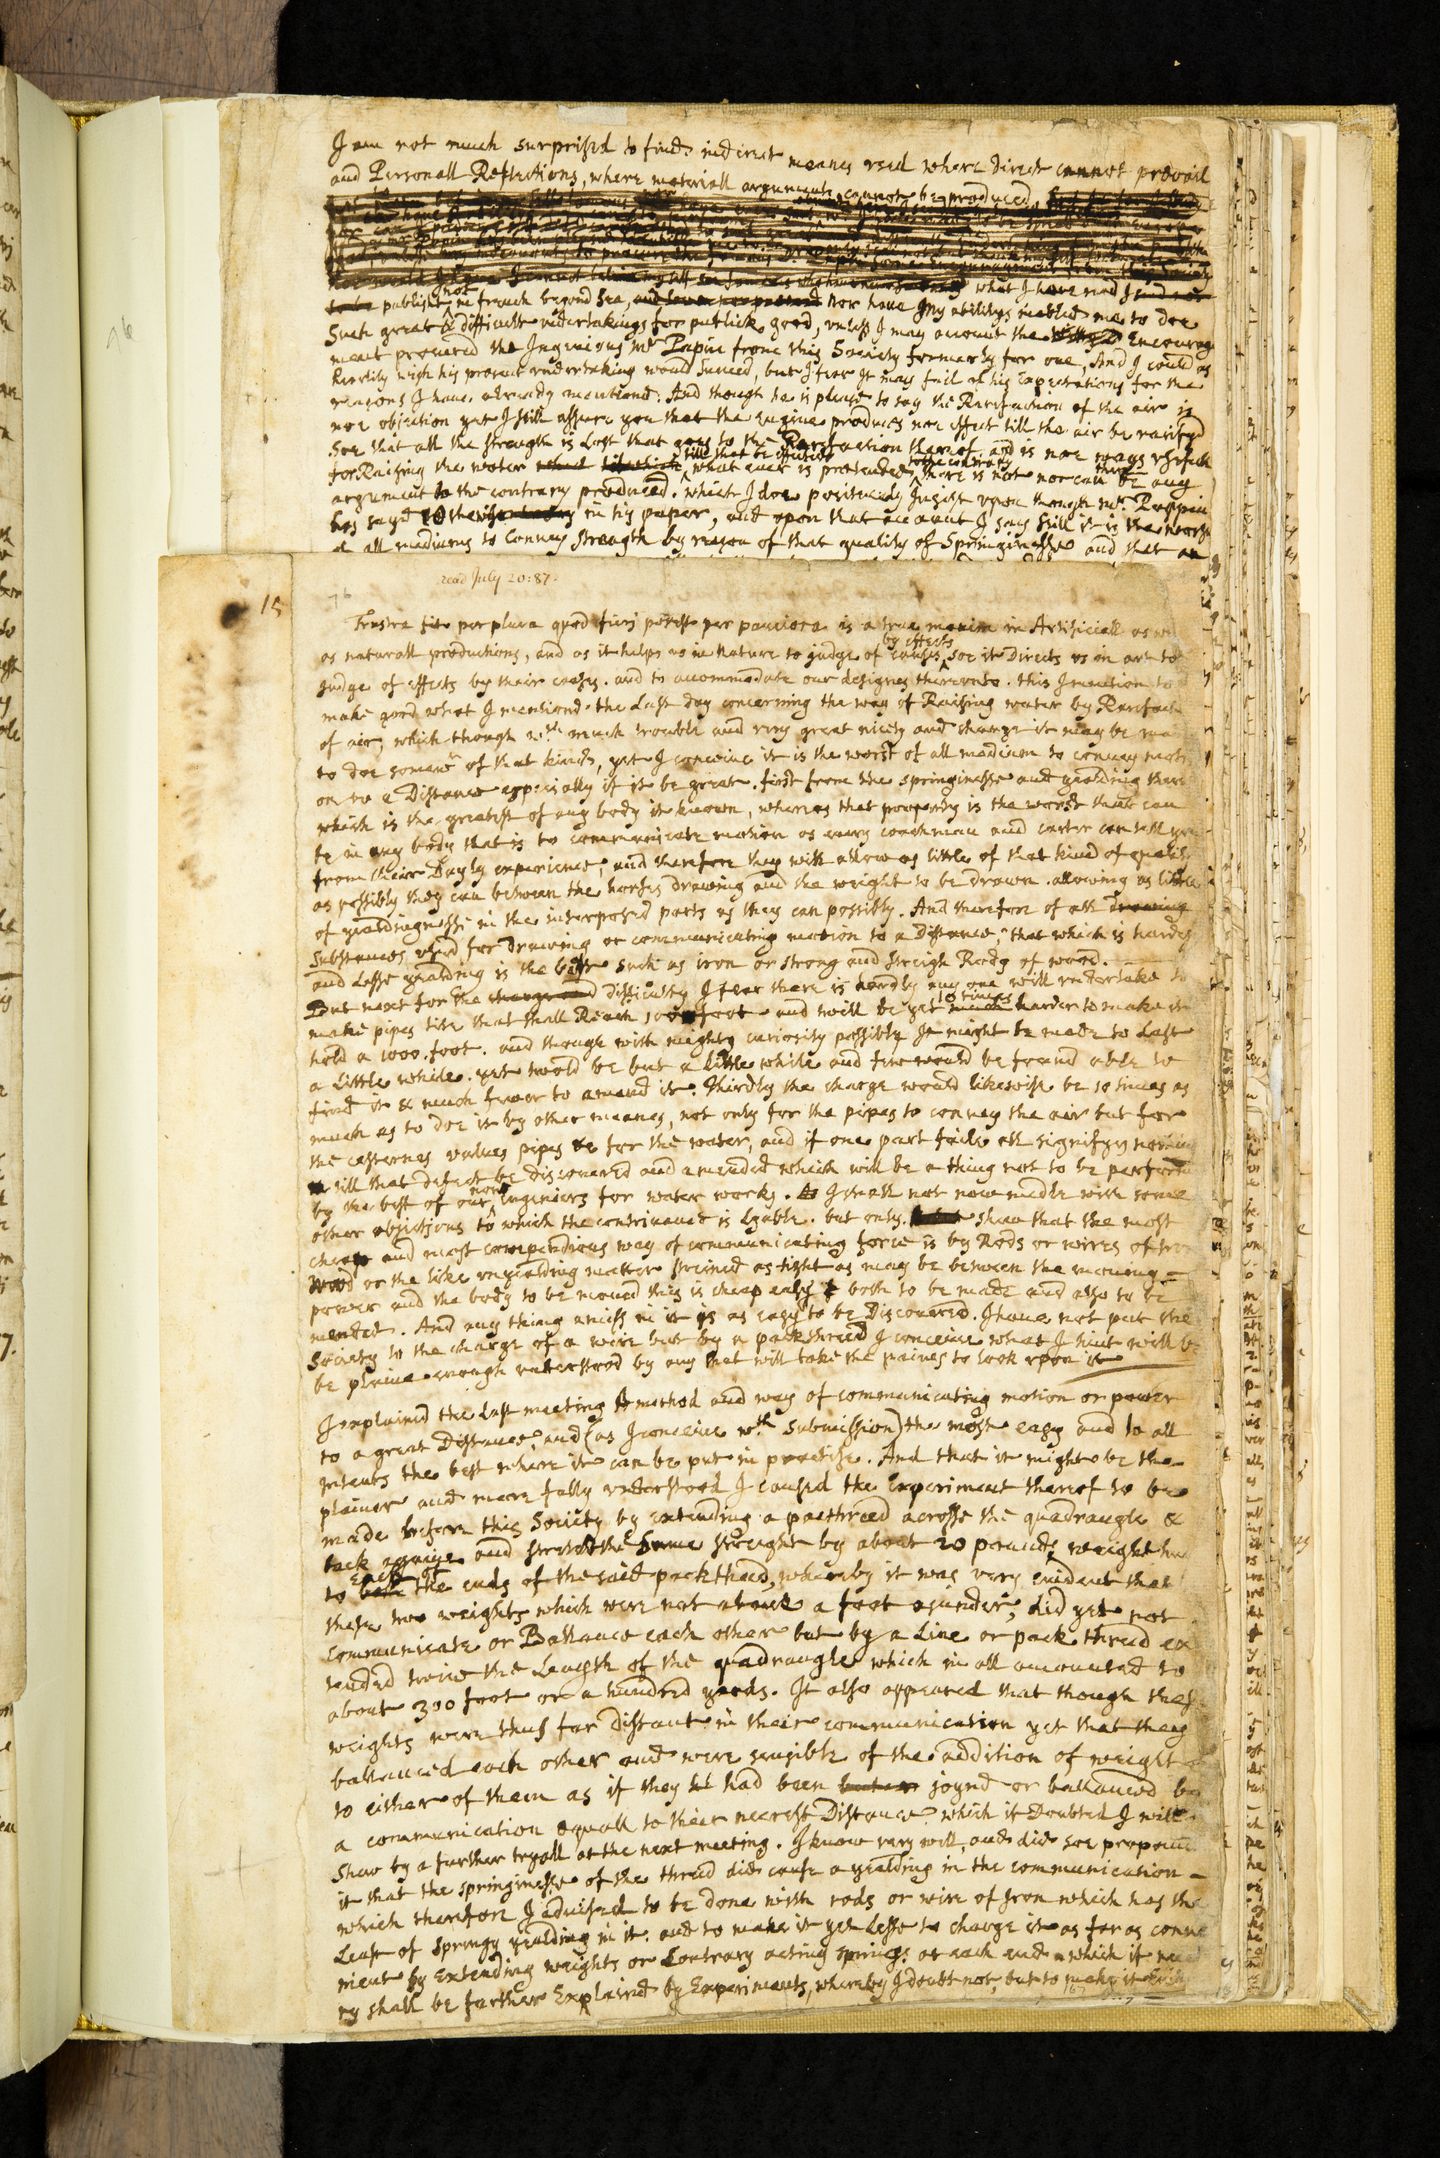 I am not much surprised to find indirect meanes used where Direct cannot prevail
and Personall Reflections, where materiall arguments cannot be produced,
what I have read I
publisht in french beyond Sea, nor have my abilitys inabled me to doe
Such great & difficult undertakings for publick good, unless I may account the Encourag
ment procured the Ingenious Mr Papin from this Society formerly for one, And I could as
heartily wish his present undertaking would succeed, but I fear It may fail of his Expectations for the
reasons I have already mentiond. And though he is pleasd to say the Rarefaction of the air is
noe objection yet I still assure you that the engine produces noe effect till the air be rarifyd
soe that all the strength is Lost that goes to the Rarefaction thereof, and is noe ways usefull
for Raising the water till that be effected what ever is pretended to the contrary there is not nor can be any
argument to the contrary produced. which I doe positively Insist upon though Mr. Pappin
has sayd otherwise in his paper, and upon that account I say still it is the worst
of all mediums to Convey strength by reason of that quality of Springinesse and that an
read July 20: 87.
76
76
15
Frustra fit per plura quod fieri potest per pauciora is a true maxim in Artificiall as well
as naturall productions, and as it helps us in nature to judge of causes by effects soe it Directs us in art to
Judge of effects by their causes. and to accommodate our designes thereunto. this I mention to
make good what I mentiond the Last day concerning the way of Raising water by Rarefact
of air, which though wth much trouble and very great nicety and charge it may be ma
to doe somewt of that kind, yet I conceive it is the worst of all medium to convey moti
on to a Distance especially if it be great. first from the springinesse and yealding there
which is the greatest of any body is known, whereas that property is the worst that can
be in any body that is to communicate motion as every coachman and carter can tell you
from their Dayly experience, and therefore they will allow as little of that kind of quality
as possibly they can between the horses drawing and the weight to be drawn. allowing as little
of yealdingnesse in the interposed parts as they can possibly. And therefore of all drawing
substances used for drawing or communicating motion to a Distance, that which is hardest
and Lesse yealding is the best such as iron or strong and streight Rods of wood.
But next for the difficulty I fear there is hardly any one will undertake to
make pipes tite that shall Reach 100 foot and will be yet 10 times harder to make it
hold a 1000. foot. and though with mighty curiosity possibly It might be made to Last
a Little while. yet would be but a little while and few would be found able to
find it & much fewer to amend it. Thirdly the charge would likewise be 10 times as
much as to doe it by other meanes, not only for the pipes to convey the air but for
the cisternes valves pipes &c for the water, and if one part faile all signifyes nothing
till that defect be discovered and amended which will be a thing not to be performd
by the best of our now Ingeniers for water works. I shall not now medle with some
other objections to which the contrivance is Lyable. but only shew that the most
cheap and most compendious way of communicating force is by Rods or wires of Iron
wood or the like unyealding matter streined as tight as may be between the moving
power and the body to be moved this is cheap easy & both to be made and also to be
mended. And any thing amiss in it is as easy to be Discovered. I have not put the
Society to the charge of a wire but by a packthreed I conceive what I hint will be
be plaine enough understood by any that will take the paines to look upon it
I explained the Last meeting A method and way of communicating motion or power
to a great Distance, and (as I conceive wth submission) the most easy and to all
intents the best where it can be put in practise. And that it might be the
plainer and more fully understood I caused the Experiment thereof to be
made before this Society by extending a pacthreed acrosse the quadrangle &
back againe and streind the same streight by about 20 pounds weight hu
to each of the ends of the said packthreed, whereby it was very evident that
these two weights which were not above a foot asunder, did yet not
communicate or Ballance each other but by a Line or pack threed ex
tended twice the Length of the quadrangle which in all amounted to
about 300 foot or a hundred yards. It also appeared that though these
weights were thus far distant in their communication yet that they
ballanced each other and were sensible of the addition of weight
to either of them as if they had been joynd or ballanced by
a communication equall to their neerest Distance. which if Doubted I will
shew by a further tryall at the next meeting. I know very well, and did soe propound
it that the springinesse of the threed did cause a yealding in the communication
which therefore I advised to be done with rods or wire of Iron which has the
Least of springy yealding in it. and to make it yet Lesse to charge it as far as conve
nient by Extending weights or Contrary acting springs at each end. which if neces
ry shall be farther Explained by Experiments, whereby I doubt not, but to make it